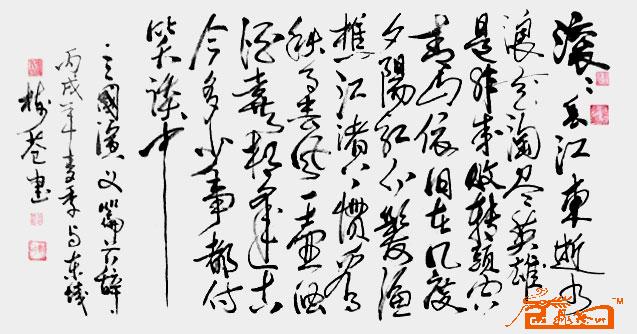 滚滚长江東逝水
浪花淘尽英雄
是非成敗转頭空
青山依旧在几度
夕陽红白髮渔
樵江渚上惯看
秋月春风一壶酒
浊喜相逢古
今多少事都付
笑谈中
三國演义篇首辞
丙戌年夏季于东城
书